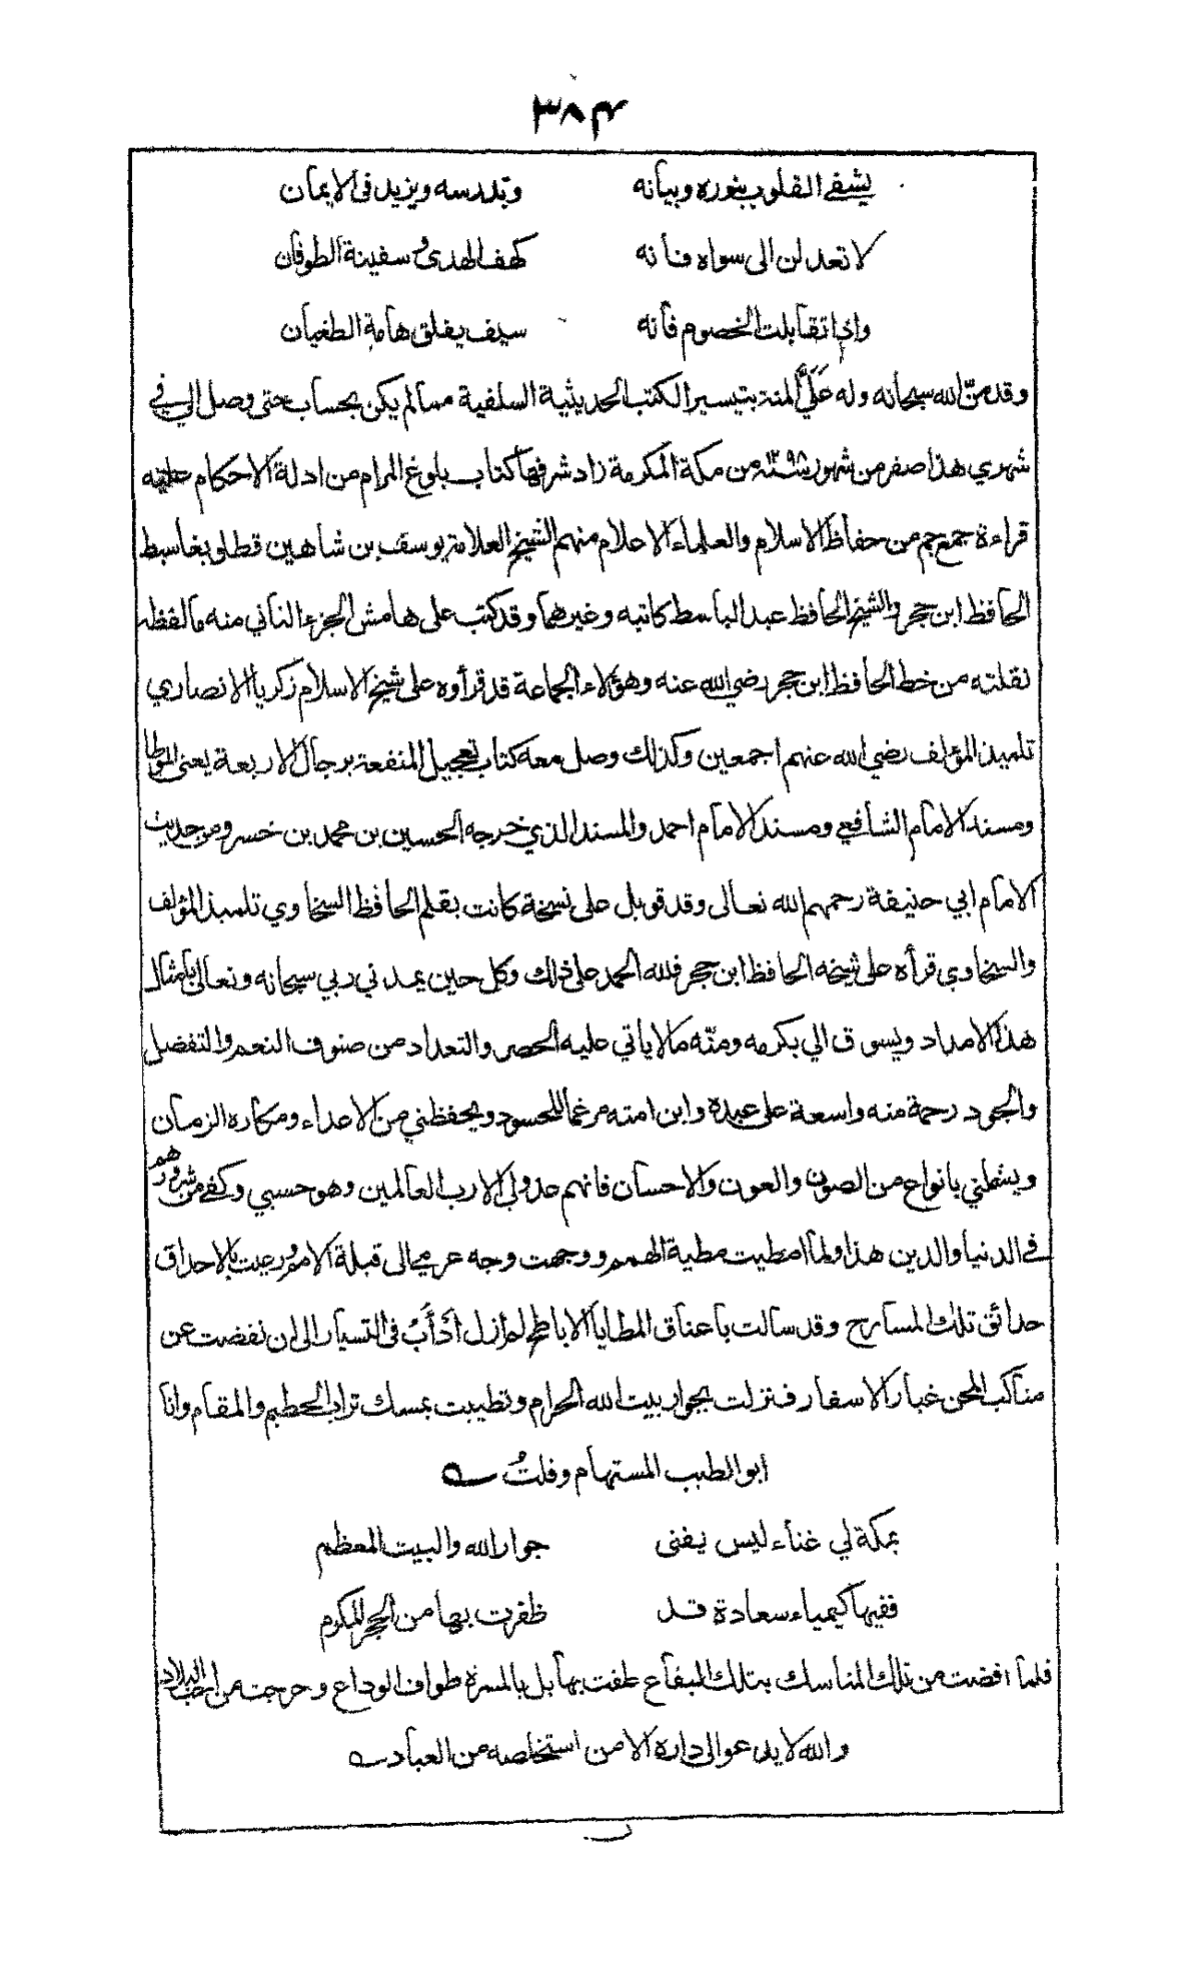 ٣٨٤
يشفي القلوب بنوره وبيانه وبدرسه ويزيد في الايمان
لا تعدلن الى سواه فانه كهف الهدى وسفينة الطوفان
واذا تقابلت الخصوم فانه سيف يفلق هامة الطغيان
وقد منّ الله سبحانه وله عَلَيَّ المنة بتيسير الكتب الحديثية السلفية ممالم يكن بحساب حتى وصل الي في
شهري هذا صفر من شهور سنة ١٢٩٨ من مكة المكرمة زاد شرفها كتاب بلوغ المرام من ادلة الاحكام عليه
قراءة جمع جم من حفاظ الاسلام والعلماء الاعلام منهم الشيخ العلامة يوسف بن شاهين قطلوبغا سبط
الحافظ ابن حجر والشيخ الحافظ عبد الباسط كاتبه وغيرهما وقد كتب على هامش الجزء الثاني منه مالفظه
نقلته من خط الحافظ ابن حجر رضي الله عنه وهؤلاء الجماعة قد قرأوه على شيخ الاسلام زكريا الانصاري
تلميذ المؤلف رضي الله عنهم اجمعين وكذلك وصل معه كتاب تعجيل المنفعة برجال الاربعة يعنى الموطا
ومسند الامام الشافعي ومسند الامام احمد والمسند الذي خرجه الحسين بن محمد بن خسرو من حديث
الامام ابي حنيفة رحمهم الله تعالى وقد قوبل على نسخة كانت بقلم الحافظ السخاوي تلميذ المؤلف
والسخاوي قرأه على شيخه الحافظ ابن حجر فلله الحمد على ذلك وكل حين يمدني ربي سبحانه وتعالى بامثال
هذا الامداد ويسوق الي بكرمه ومنّه مالا ياتي عليه الحصر والتعداد من صنوف النعم والتفضل
والجود رحمة منه واسعة على عبده وابن امته مرغما للحسود ويحفظني من الاعداء ومكاره الزمان
ويشملني بانواع من الصون والعون والاحسان فانهم عدو لي الا رب العالمين وهو حسبي وكفى من شرورهم
في الدنيا والدين هذا ولما امطيت مطية الهمم ووجهت وجه عزمي الى قبلة الامم ورعيت بالاحداق
حدائق تلك المسارح وقد سالت باعناق المطايا الاباطح لم ازل اَدْأَبُ في التسيار الى ان نفضت عن
مناكب المحن غبار الاسفار فنزلت بجوار بيت الله الحرام وتطيبت بمسك تراب الحطيم والمقام وانا
ابو الطيب المستهام وقلتُ
بمكة لي غناء ليس يفنى جوار الله والبيت المعظم
ففيها كيمياء سعادة قد ظفرت بها من الحجر المكرم
فلما افضت من تلك المناسك بتلك البقاع طفت بها بل بالمسرة طواف الوداع وخرجت من احب البلاد
والله لا يدعو الى داره الا من استخلصه من العباد